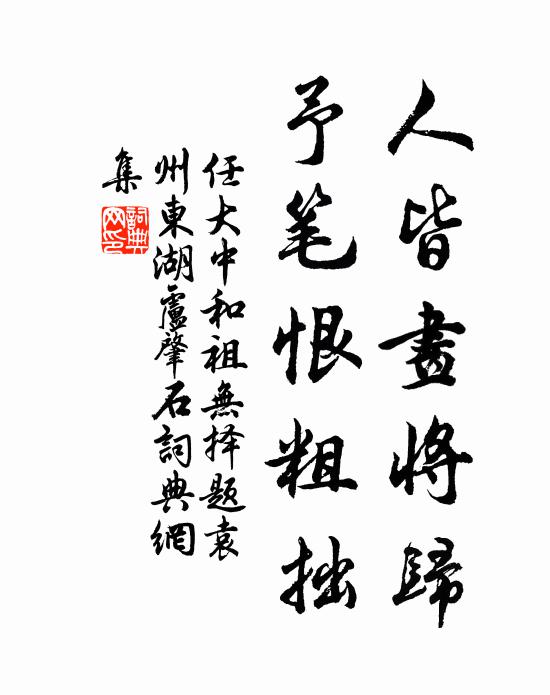 人皆畫將歸
予笔恨粗拙
任大中和祖無择题袁
州東湖盧肇石詞典網
集
詞典网印